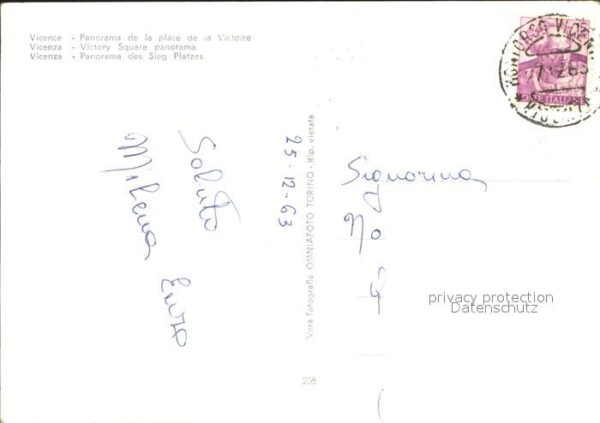 Vicence - Panorama de la place de la Victoire
Vicenza - Victory Square panorama
Vicenza - Panorama des Sieg Platzes
25-12-63
Saluto
Milena Enzo
Vera fotografia OMNIAFOTO TORINO - Rip. vietata
208
Signorina
privacy protection
Datenschutz